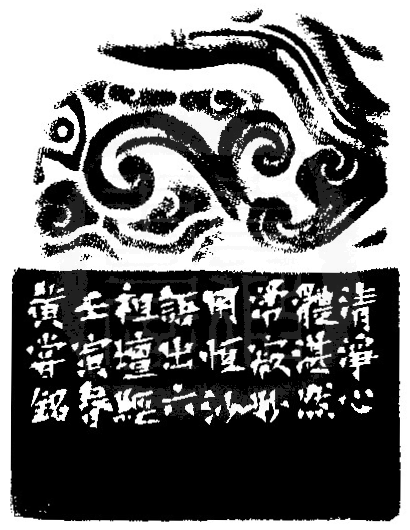 清淨心
體湛然
常寂妙
用恒沙
語出六
祖壇經
壬寅春
黃嘗銘